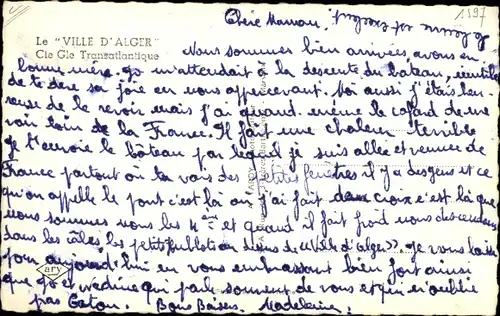 1197
Le "VILLE D'ALGER"
Cie Gle Transatlantique
Chère Maman,
Nous sommes bien arrivées, avons eu
bonne mère. Jo m'attendait à la descente du bateau, inutile
de te dire sa joie en nous apercevant. Moi aussi j'étais heu-
reuse de le revoir mais j'ai quand même le cafard de me
voir loin de la France. Il fait une chaleur terrible
Je t'envoie le bateau par lequel je suis allée et revenue de
France partout où tu vois des petites fenêtres il y a des gens et ce
qu'on appelle le pont c'est là où j'ai fait deux croix c'est là que
nous sommes nous les 4ème et quand il fait froid nous descendons
dans les cales les petits hublots au dessus de "Ville d'Alger". Je vous laisse
pour aujourd'hui en vous embrassant bien fort ainsi
que Jo et qui parle souvent de vous et qui n'oublie
pas Gaton. Bons Baisers. Madeleine.
ary